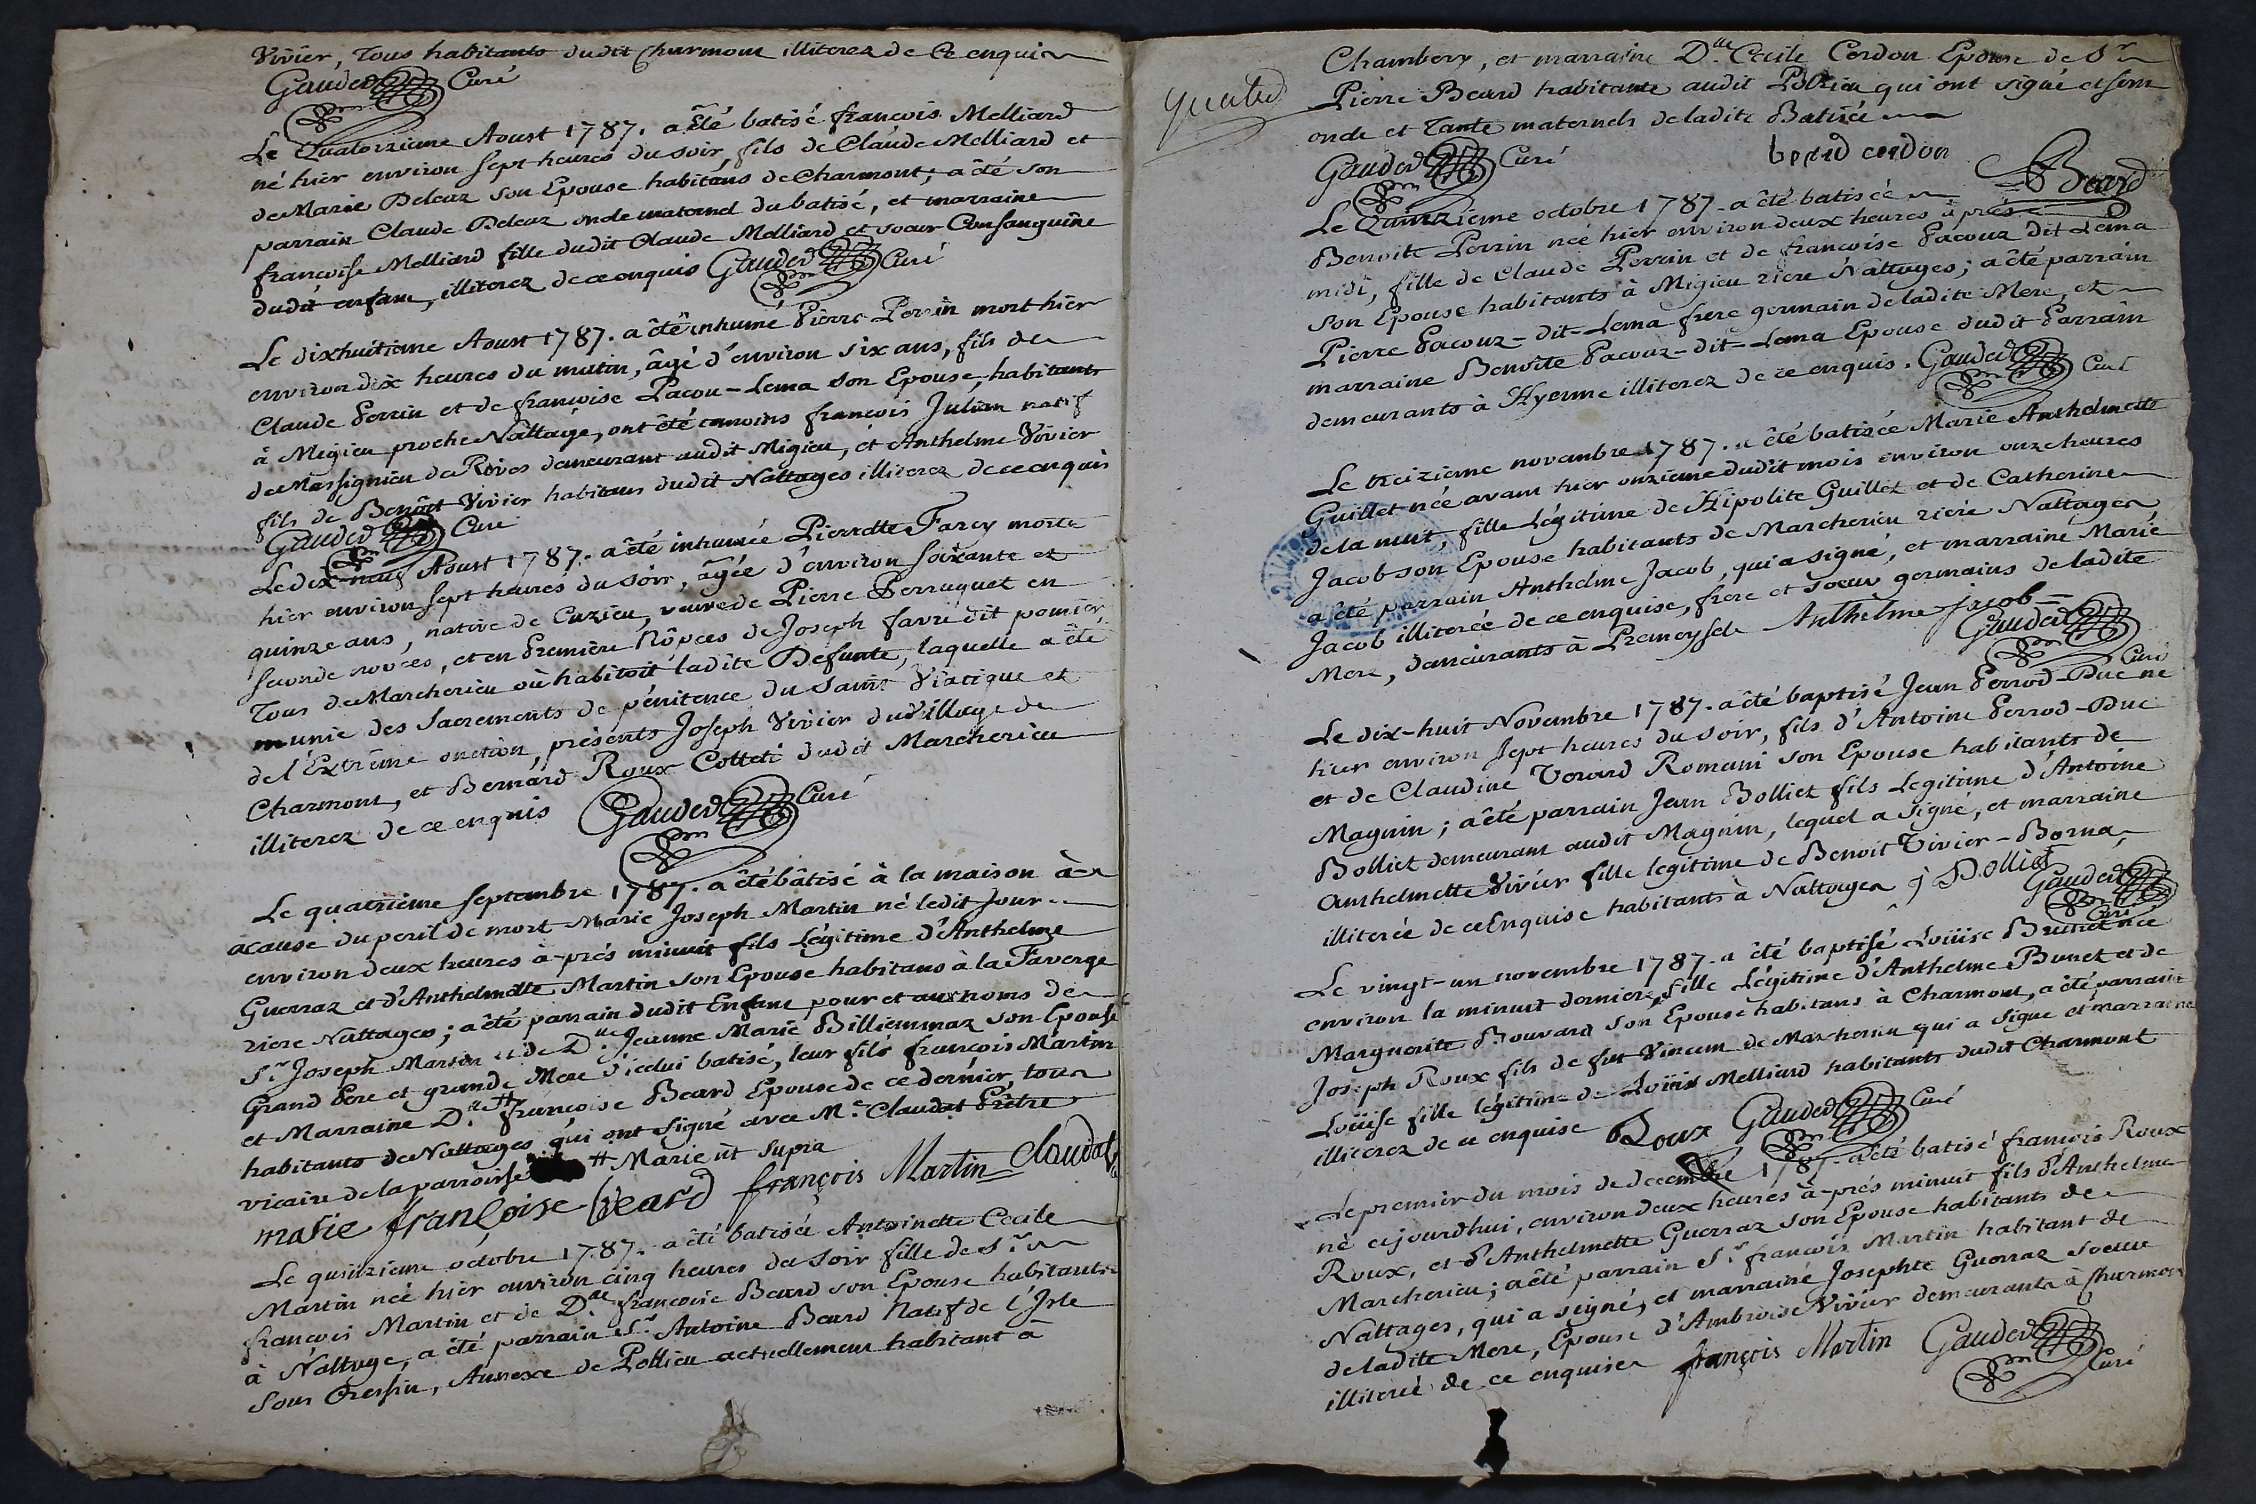 Vivier, Tous habitants dudit Charmont illiterez de ce enquis
Gauded Curé
Le Quatorzieme Aoust 1787. a êté batisé françois Melliard
né hier environ sept heures du soir, fils de Claude Melliard et
de Marie Deleaz son Epouse habitans de Charmont; a êté son
parrain Claude Deleaz oncle maternel du batisé, et marraine
françoise Melliard fille dudit Claude Melliard et soeur Consanguine
dudit enfant, illiterez de ce enquis Gauded Curé
Le dixhuitieme Aoust 1787. a êté inhumé Pierre Perrin mort hier
environ dix heures du matin, âgé d'environ six ans, fils de
Claude Perrin et de françoise Pacou-Lema son Epouse, habitants
à Migieu proche Nattage, ont êté temoins françois Julian natif
de Massignieu de Rives demeurant audit Migieu, et Anthelme Vivier
fils de Benoit Vivier habitans dudit Nattages illiterez de ce enquis
Gauded Curé
Le dix-neuf Aoust 1787. a êté inhumée Pierrette Farcy morte
hier environ sept heures du soir, âgée d'environ soixante et
quinze ans, native de Cuzieu, veuve de Pierre Perruquet en
seconde noces, et en Premiere Nôpces de Joseph favre dit pomier,
Tous de Marchérieu où habitoit ladite Defunte, laquelle a êté
munie des Sacrements de pénitence du Saint Viatique et
de l'Extrême onction, présents Joseph Vivier du Village de
Charmont, et Bernard Roux Colleti dudit Marcherieu
illiterez de ce enquis Gauded Curé
Le quatrieme septembre 1787. a êté bâtisé à la maison à
acause du peril de mort Marie Joseph Martin né ledit Jour
environ deux heures à-prés minuit fils Légitime d'Anthelme
Guerraz et d'Anthelmette Martin son Epouse habitans à la Faverge
riere Nattages; a êté parrain dudit Enfant pour et aux noms de
Sr Joseph Martin et de De Jeanne Marie Billiemmaz son Epouse
Grand Pere et grande Mere d'icelui batisé, leur fils françois Martin
et Marraine De # françoise Beard Epouse de ce dernier, tous
habitants de Nattages qui ont signé avec Mr Claudat Prêtre
vicaire de la parroisse # Marie ut supra
marie françoise beard françois Martin Claudat
Le quinzieme octobre 1787. a êté batisée Antoinette Cecile
Martin née hier environ cinq heures du soir fille de Sr
françois Martin et de Dlle françoise Beard son Epouse habitants
à Nattage, a êté parrain Sr Antoine Beard Natif de l'Isle
sous Cressin, Annexe de Pollieu actuellement habitant à
Chambery, et marraine Dlle Cecile Cerdon Epouse de Sr
Pierre Beard habitante audit Pollieu qui ont signé et sont
oncle et Tante maternels de ladite Batisée
Gauded Curé beard cerdon Beard
Le Quinzieme octobre 1787. a êté batisée
Benoite Perrin née hier environ deux heures à prés
midi, fille de Claude Perrin et de françoise Pacouz dit Lema
son Epouse habitants à Migieu riere Nattages; a êté parrain
Pierre Pacouz-dit-Lema frere germain de ladite Mere, et
marraine Benoite Pacouz-dit-Lema Epouse dudit Parrain
demeurants à Hyenne illiterez de ce enquis. Gauded Curé
Le treizieme novembre 1787. a êté batisée Marie Anthelmette
Guillet née avant hier onzieme dudit mois environ onze heures
de la nuit, fille Légitime de Hipolite Guillet et de Catherine
Jacob son Epouse habitants de Marcherieu riere Nattages,
a êté parrain Anthelme Jacob, qui a signé, et marraine Marie
Jacob illiterée de ce enquise, frere et soeur germains de ladite
Mere, demeurants à Premeyzel Anthelme jacob
Gauded Curé
Le dix-huit Novembre 1787. a êté baptisé Jean Perrod-Duc né
hier environ sept heures du soir, fils d'Antoine Perrod-Duc
et de Claudine Tovard Romani son Epouse habitants de
Magnin; a êté parrain Jean Bolliet fils Legitime d'Antoine
Bolliet demeurant audit Magnin, lequel a signé, et marraine
Anthelmette Vivier fille legitime de Benoit Vivier-Borna,
illiterée de ce Enquise habitants à Nattages j Bolliet
Gauded Curé
Le vingt-un novembre 1787. a êté baptisé Loüise Brunet née
environ la minuit derniere, fille Légitime d'Anthelme Bunet et de
Marguerite Bouvard son Epouse habitans à Charmont, a êté parrain
Joseph Roux fils de feu Vincent de Marcherieu qui a signé et marraine
Loüise fille légitime de Loüis Melliard habitants dudit Charmont
illiterez de ce enquise Roux Gauded Curé
Le premier du mois de decembre 1787. a êté batisé françois Roux
né cejourdhui, environ deux heures à-prés minuit fils d'Anthelme
Roux, et d'Anthelmette Guerraz son Epouse habitants de
Marcherieu; a êté parrain Sr françois Martin habitant de
Nattages, qui a signé, et marraine Josephte Guerraz soeur
de ladite Mere, Epouse d'Ambroise Vivier demeurants à Charmont
illiterée de ce enquise françois Martin Gauded Curé